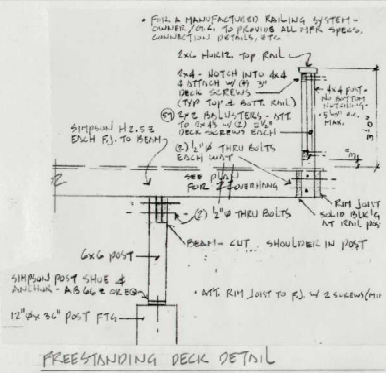 • FOR A MANUFACTURED RAILING SYSTEM -
OWNER / G.C. TO PROVIDE ALL MFR SPECS,
CONNECTION DETAILS, ETC
2x6 HORIZ. TOP RAIL
2x4 - NOTCH INTO 4x4
& ATTACH W/ (4) 3"
DECK SCREWS
(TYP TOP & BOTT. RAIL)
2x2 BALUSTERS - ATT
TO 2x4S W/ (2) 2½"
DECK SCREWS EACH
4x4 POST -
NO BOTTOM
NOTCHING -
MAX.
SIMPSON H2.5
EACH F.J. TO BEAM
(2) ½"ø THRU BOLTS
EACH WAY
SEE PLAN
FOR OVERHANG
RIM JOIST
SOLID BLK'G
AT RAIL POS
(2) ½"ø THRU BOLTS
BEAM - CUT SHOULDER IN POST
6x6 POST
SIMPSON POST SHOE &
ANCHOR - AB66 OR EQ.
• ATT. RIM JOIST TO F.J. W/ 2 SCREWS (MIN
12"ø x 36" POST FTG
FREESTANDING DECK DETAIL